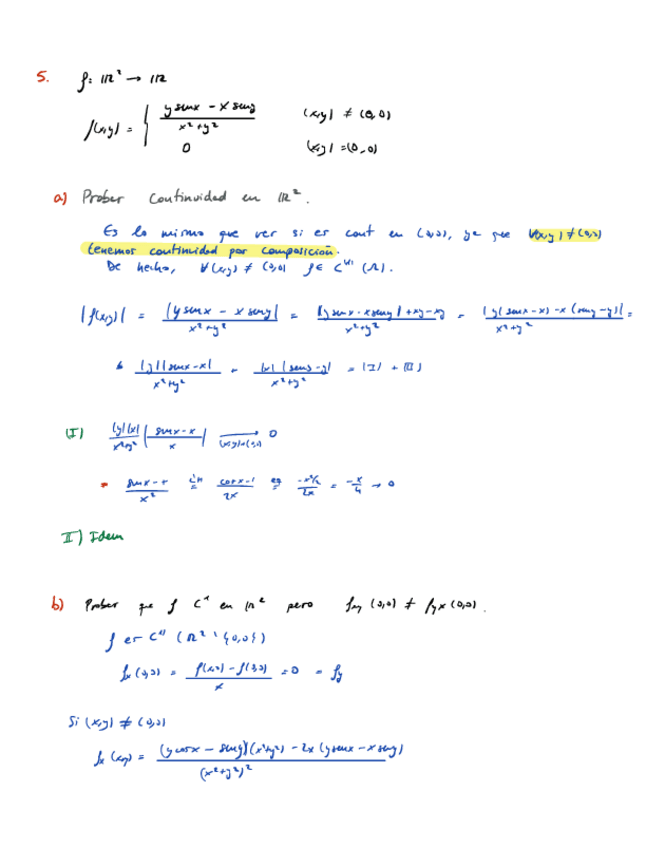 5. f: ℝ² → ℝ
f(x,y) = { (y senx - x seny)/(x²+y²)   (x,y) ≠ (0,0)
0   (x,y) = (0,0)
a) Probar continuidad en ℝ².
Es lo mismo que ver si es cont en (0,0), ya que ∀(x,y) ≠ (0,0)
tenemos continuidad por composición.
De hecho, ∀(x,y) ≠ (0,0) f ∈ C
|f(x,y)| = |y senx - x seny|/(x²+y²) = |y senx - x seny| + xy - xy/(x²+y²) = |y(senx-x) - x(seny-y)|/(x²+y²) =
|y||senx-x|/(x²+y²) |x||seny-y|/(x²+y²) = (I) + (II)
(I) |y||x|/(x²+y²) |(senx-x)/x| → (x,y)→(0,0) 0
(senx-x)/x² = (cosx-1)/2x = (-x²/2)/2x = -x/4 → 0
II) Idem
b) Probar que f C¹ en ℝ² pero fxy(0,0) ≠ fyx(0,0).
f es C (ℝ² \ {0,0})
fx(0,0) = (f(x,0) - f(0,0))/x = 0 = fy
Si (x,y) ≠ (0,0)
fx(x,y) = ((y cosx - seny)(x²+y²) - 2x(y senx - x seny))/(x²+y²)²